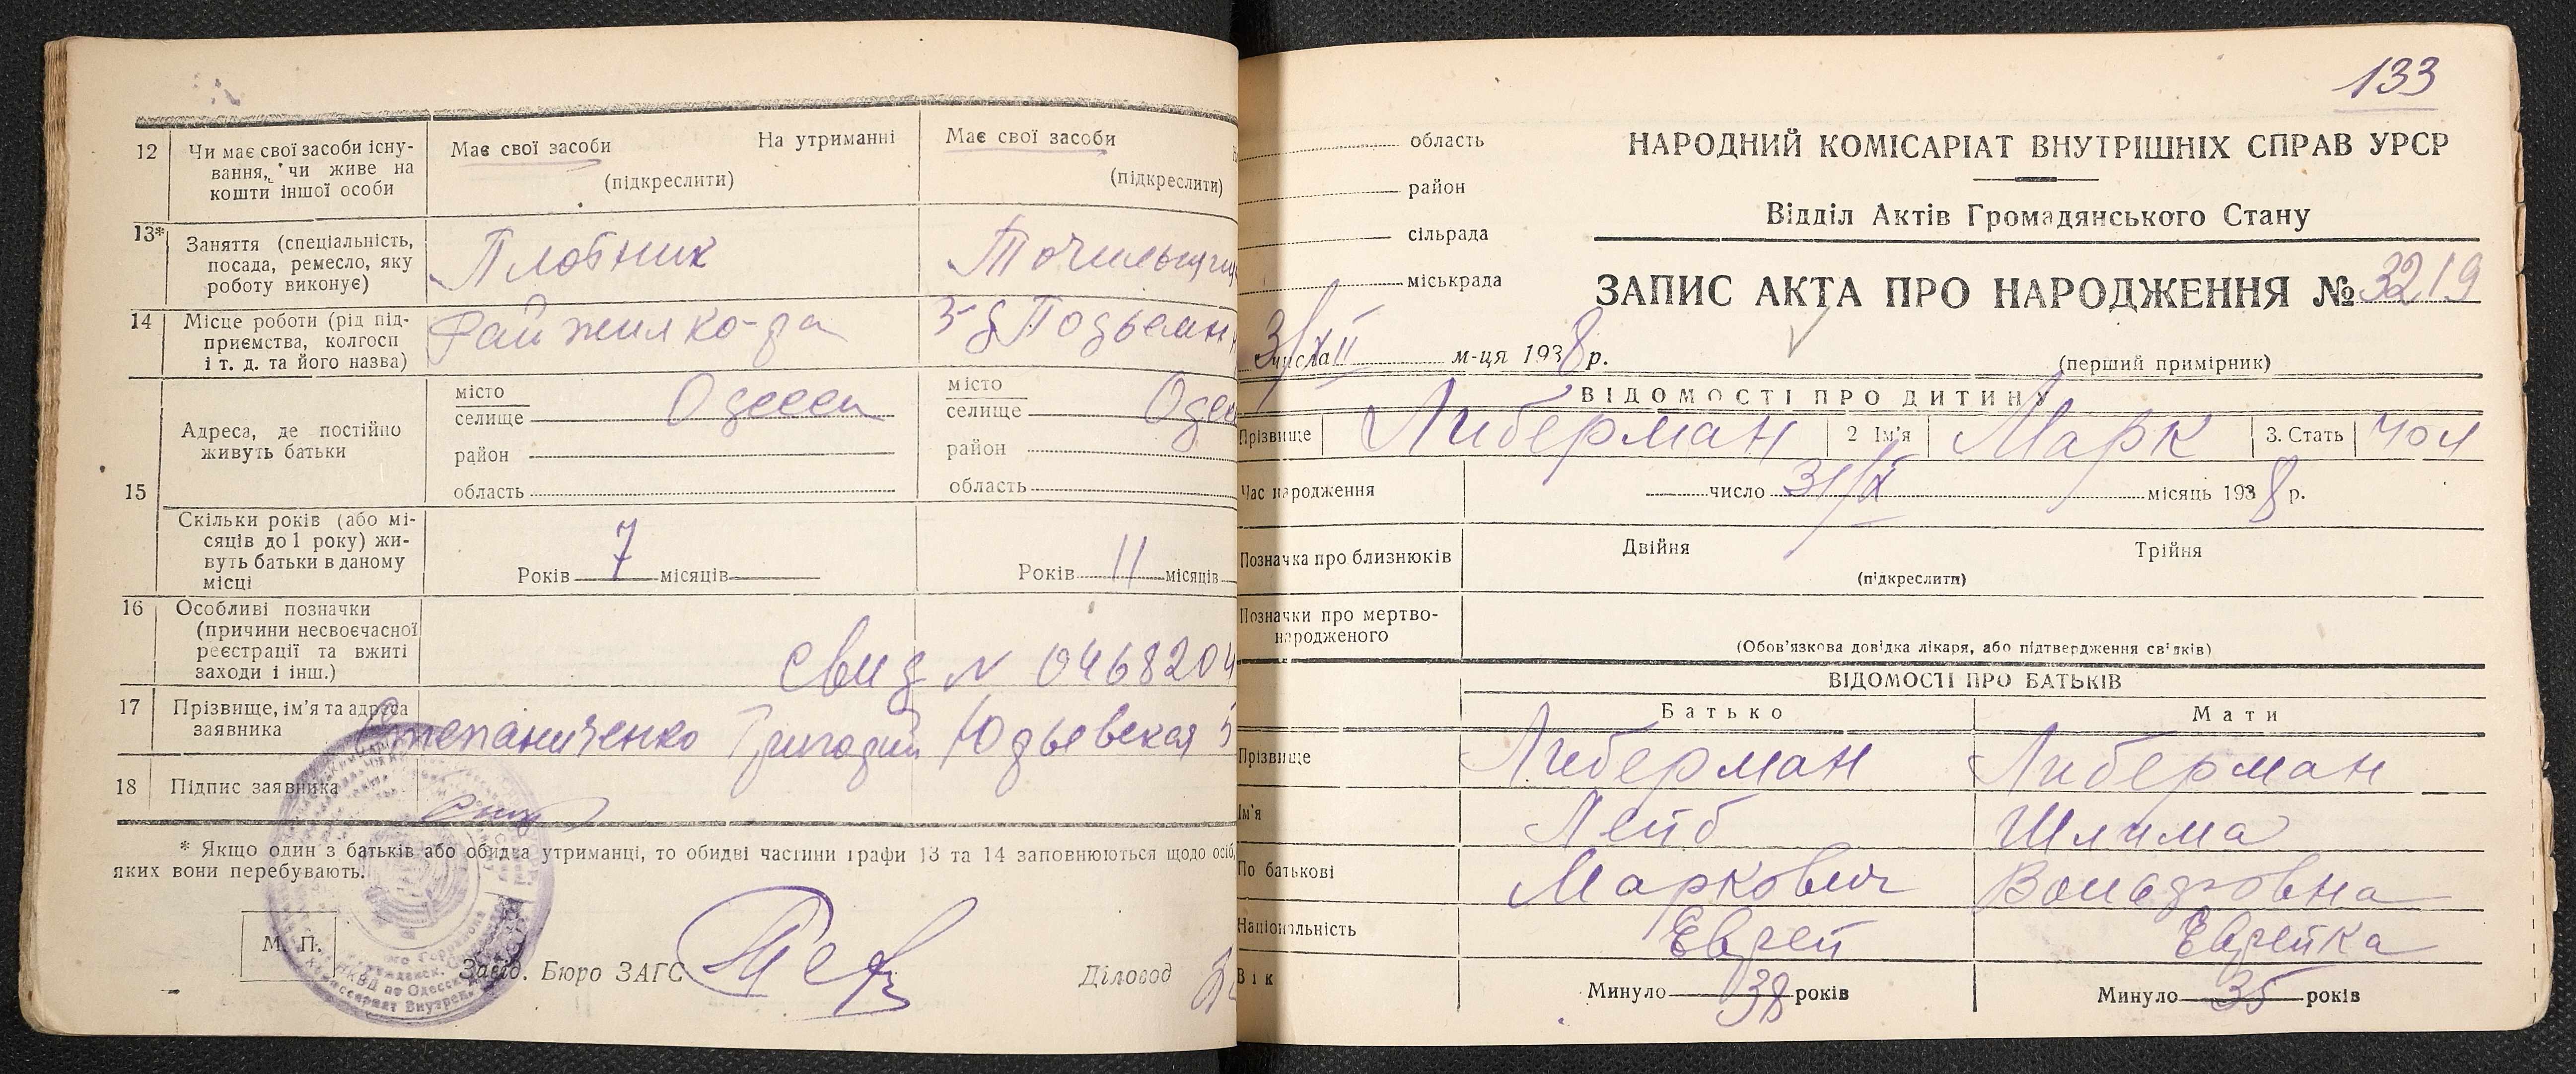 12 Чи має свої засоби існу-
вання, чи живе на
кошти іншої особи
Має свої засоби На утриманні
(підкреслити)
Має свої засоби
(підкреслити)
13* Заняття (спеціальність,
посада, ремесло, яку
роботу виконує)
Плотник
Точильщи
14 Місце роботи (рід під-
приємства, колгосп
і т. д. та його назва)
Райжилко-ра
З-д Подъемн
15 Адреса, де постійно
живуть батьки
місто
селище Одесса
район
область
місто
селище Одес
район
область
Скільки років (або мі-
сяців до 1 року) жи-
вуть батьки в даному
місці
Років 7 місяців
Років 11 місяців
16 Особливі позначки
(причини несвоєчасної
реєстрації та вжиті
заходи і інш.)
Свид N 0468204
17 Прізвище, ім'я та адреса
заявника
Степаниченко Григорий Юрьевская 5
18 Підпис заявника
* Якщо один з батьків або обидва утриманці, то обидві частини графи 13 та 14 заповнюються щодо осіб,
яких вони перебувають.
М. П.
Завід. Бюро ЗАГС
Діловод
133
область
район
сільрада
міськрада
НАРОДНИЙ КОМІСАРІАТ ВНУТРІШНІХ СПРАВ УРСР
Відділ Актів Громадянського Стану
ЗАПИС АКТА ПРО НАРОДЖЕННЯ № 3219
31/XII числа м-ця 1938 р.
(перший примірник)
ВІДОМОСТІ ПРО ДИТИНУ
Прізвище Либерман 2 Ім'я Марк 3. Стать чол
Час народження число 31/X місяць 1938 р.
Позначка про близнюків Двійня Трійня
(підкреслити)
Позначки про мертво-
народженого
(Обов'язкова довідка лікаря, або підтвердження свідків)
ВІДОМОСТІ ПРО БАТЬКІВ
Батько Мати
Прізвище Либерман Либерман
Ім'я Лейб Шлима
По батькові Маркович Вольфовна
Національність Еврей Еврейка
Вік Минуло 38 років Минуло 35 років